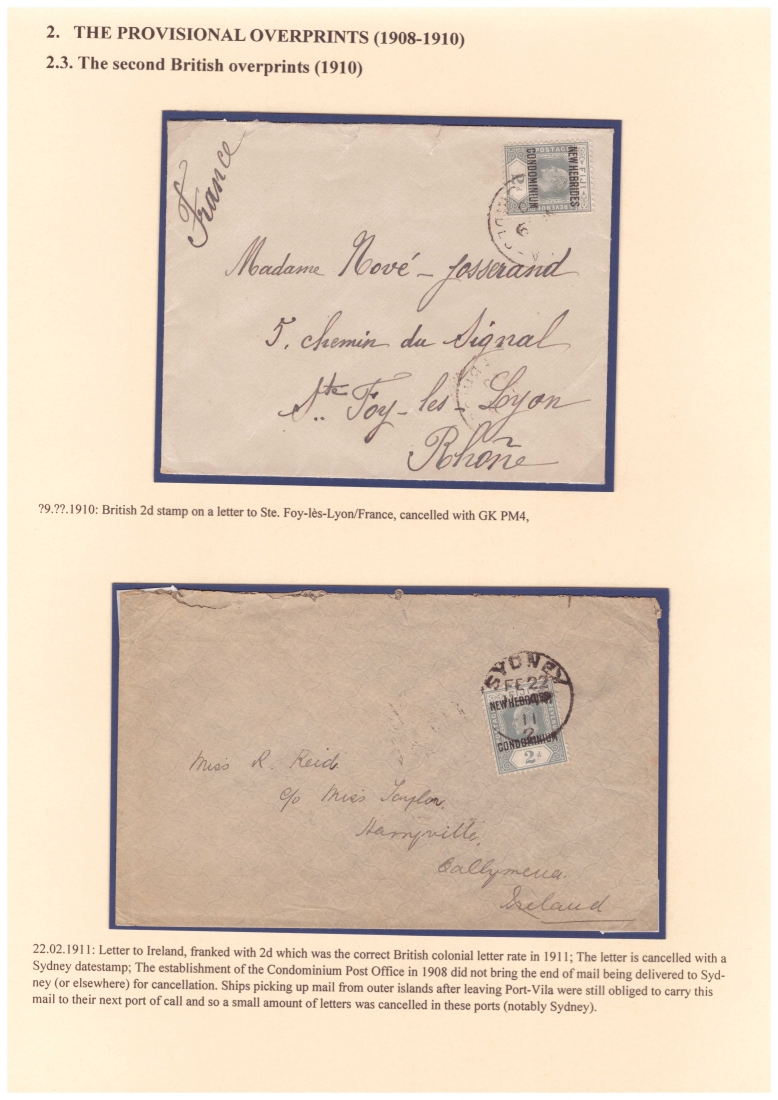 2. THE PROVISIONAL OVERPRINTS (1908-1910)
2.3. The second British overprints (1910)
France
POSTAGE
FIJI
NEW HEBRIDES
CONDOMINIUM
REVENUE
Madame Nové-Josserand
5, chemin du Signal
Ste Foy-les-Lyon
Rhône
?9.??.1910: British 2d stamp on a letter to Ste. Foy-lès-Lyon/France, cancelled with GK PM4,
SYDNEY
FE 22
NEW HEBRIDES
11
2
CONDOMINIUM
2d
Miss R. Reid
c/o Miss Taylor,
Harryville,
Ballymena.
Ireland
22.02.1911: Letter to Ireland, franked with 2d which was the correct British colonial letter rate in 1911; The letter is cancelled with a
Sydney datestamp; The establishment of the Condominium Post Office in 1908 did not bring the end of mail being delivered to Syd-
ney (or elsewhere) for cancellation. Ships picking up mail from outer islands after leaving Port-Vila were still obliged to carry this
mail to their next port of call and so a small amount of letters was cancelled in these ports (notably Sydney).